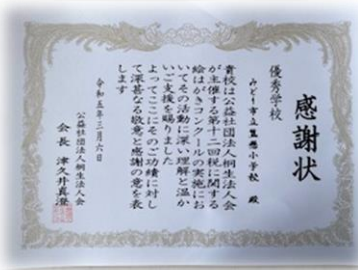 感謝状
優秀学校
みどり市立笠懸小学校 殿
貴校は公益社団法人桐生法人会
が主催する第十二回税に関する
絵はがきコンクールの実施にお
いてその活動に深い理解と温か
いご支援を賜りました
よってここにそのご功績に対し
て深甚なる敬意と感謝の意を表
します
令和五年三月六日
公益社団法人桐生法人会
会長 津久井真澄